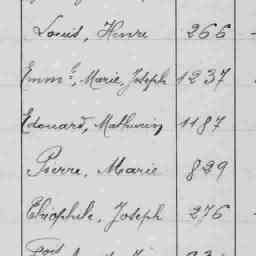 Louis, Henre 266
Emm.l, Marie, Joseph 1237
Edouard, Mathurin 1187
Pierre, Marie 829
Théophile, Joseph 276